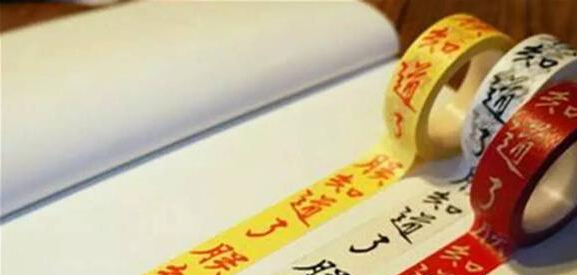 朕知道了朕知道了朕知
朕知道
朕知道了朕
知道了朕知